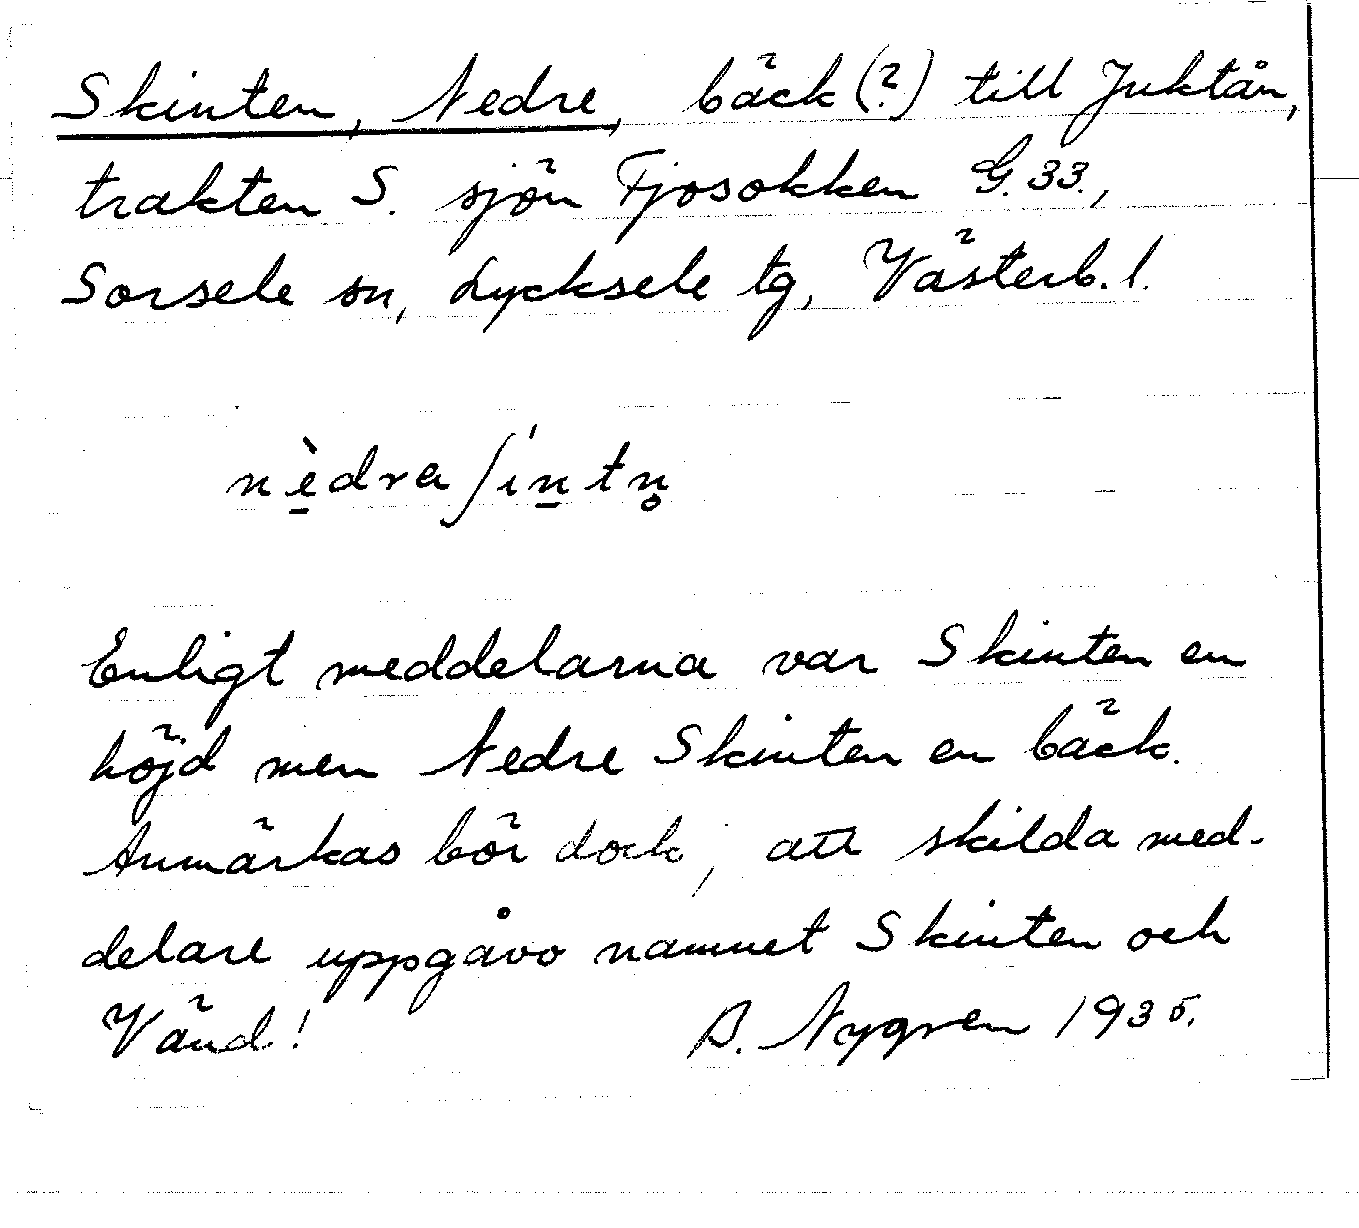 Skinten, Nedre, bäck (?) till Juktån,
trakten S. sjön Fjosokken G. 33.,
Sorsele sn, Lycksele tg, Västerb. l.
nè̠dra ʃin̠tn̥
Enligt meddelarna var Skinten en
höjd men Nedre Skinten en bäck.
Anmärkas bör dock, att skilda med-
delare uppgåvo namnet Skinten och
Vänd! B. Nygren 1935.